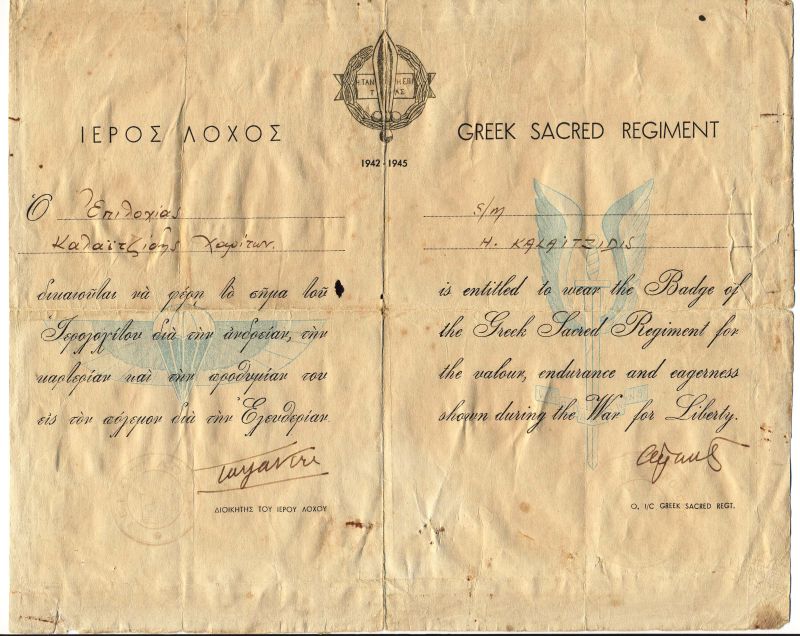 Η ΤΑΝ Η ΕΠΙ
ΤΑΣ
1942-1945
ΙΕΡΟΣ ΛΟΧΟΣ
Ὁ Ἐπιλοχίας
Καλαϊτζίδης Χαρίτων.
δικαιοῦται νὰ φέρῃ τὸ σῆμα τοῦ
Ἱερολοχίτου διὰ τὴν ἀνδρείαν, τὴν
καρτερίαν καὶ τὴν προθυμίαν του
εἰς τὸν πόλεμον διὰ τὴν Ἐλευθερίαν.
ΔΙΟΙΚΗΤΗΣ ΤΟΥ ΙΕΡΟΥ ΛΟΧΟΥ
GREEK SACRED REGIMENT
S/M
H. KALAÏTZIDIS
is entitled to wear the Badge of
the Greek Sacred Regiment for
the valour, endurance and eagerness
shown during the War for Liberty.
O. I/C GREEK SACRED REGT.